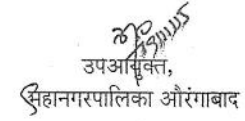 उपआयुक्त,
महानगरपालिका औरंगाबाद